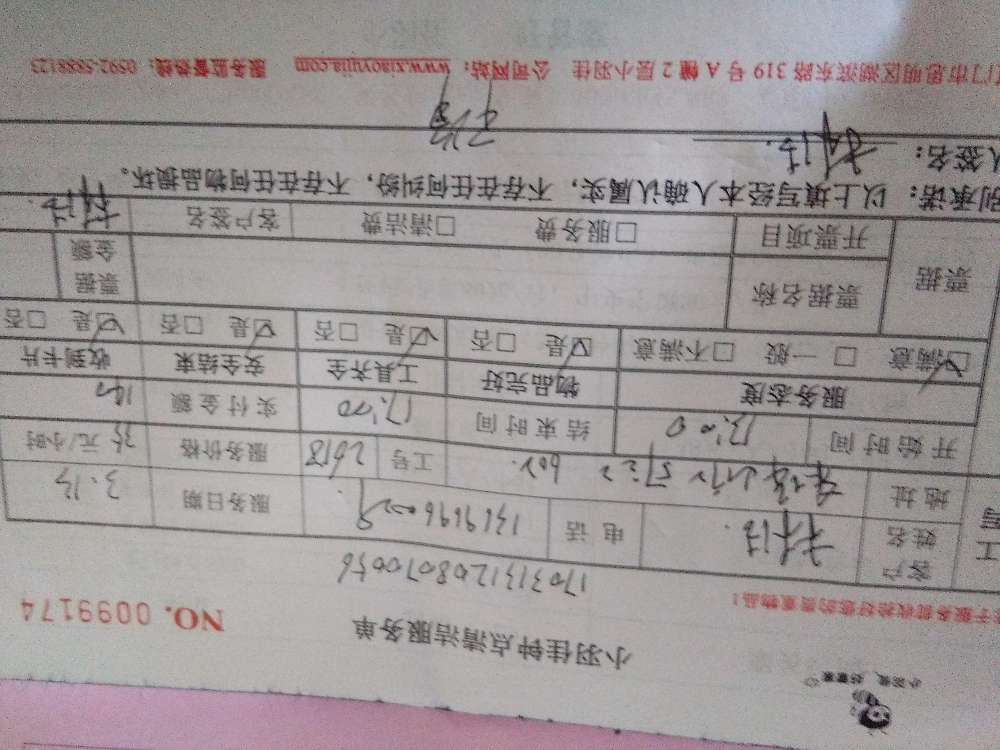 小羽佳钟点清洁服务单
NO. 0099174
于服务前收拾好您的贵重物品！
17031312080710056
客户姓名 电话 服务日期 3.13
地址 工号 2618 服务价格 35元/小时
开始时间 13:00 结束时间 17:00 实付金额 140
服务态度 物品完好 工具齐全 安全结束 收到卡片
☑满意 □一般 □不满意 ☑是 □否 ☑是 □否 ☑是 □否 ☑是 □否
票据 票据名称 票据金额
开票项目 □服务费 □清洁费 客户签名
别承诺：以上填写经本人确认属实，不存在任何纠纷，不存在任何物品损坏。
人签名：
门市思明区湖滨东路319号A幢2层小羽佳 公司网站：www.xiaoyujia.com 服务监督热线：0592-5888123